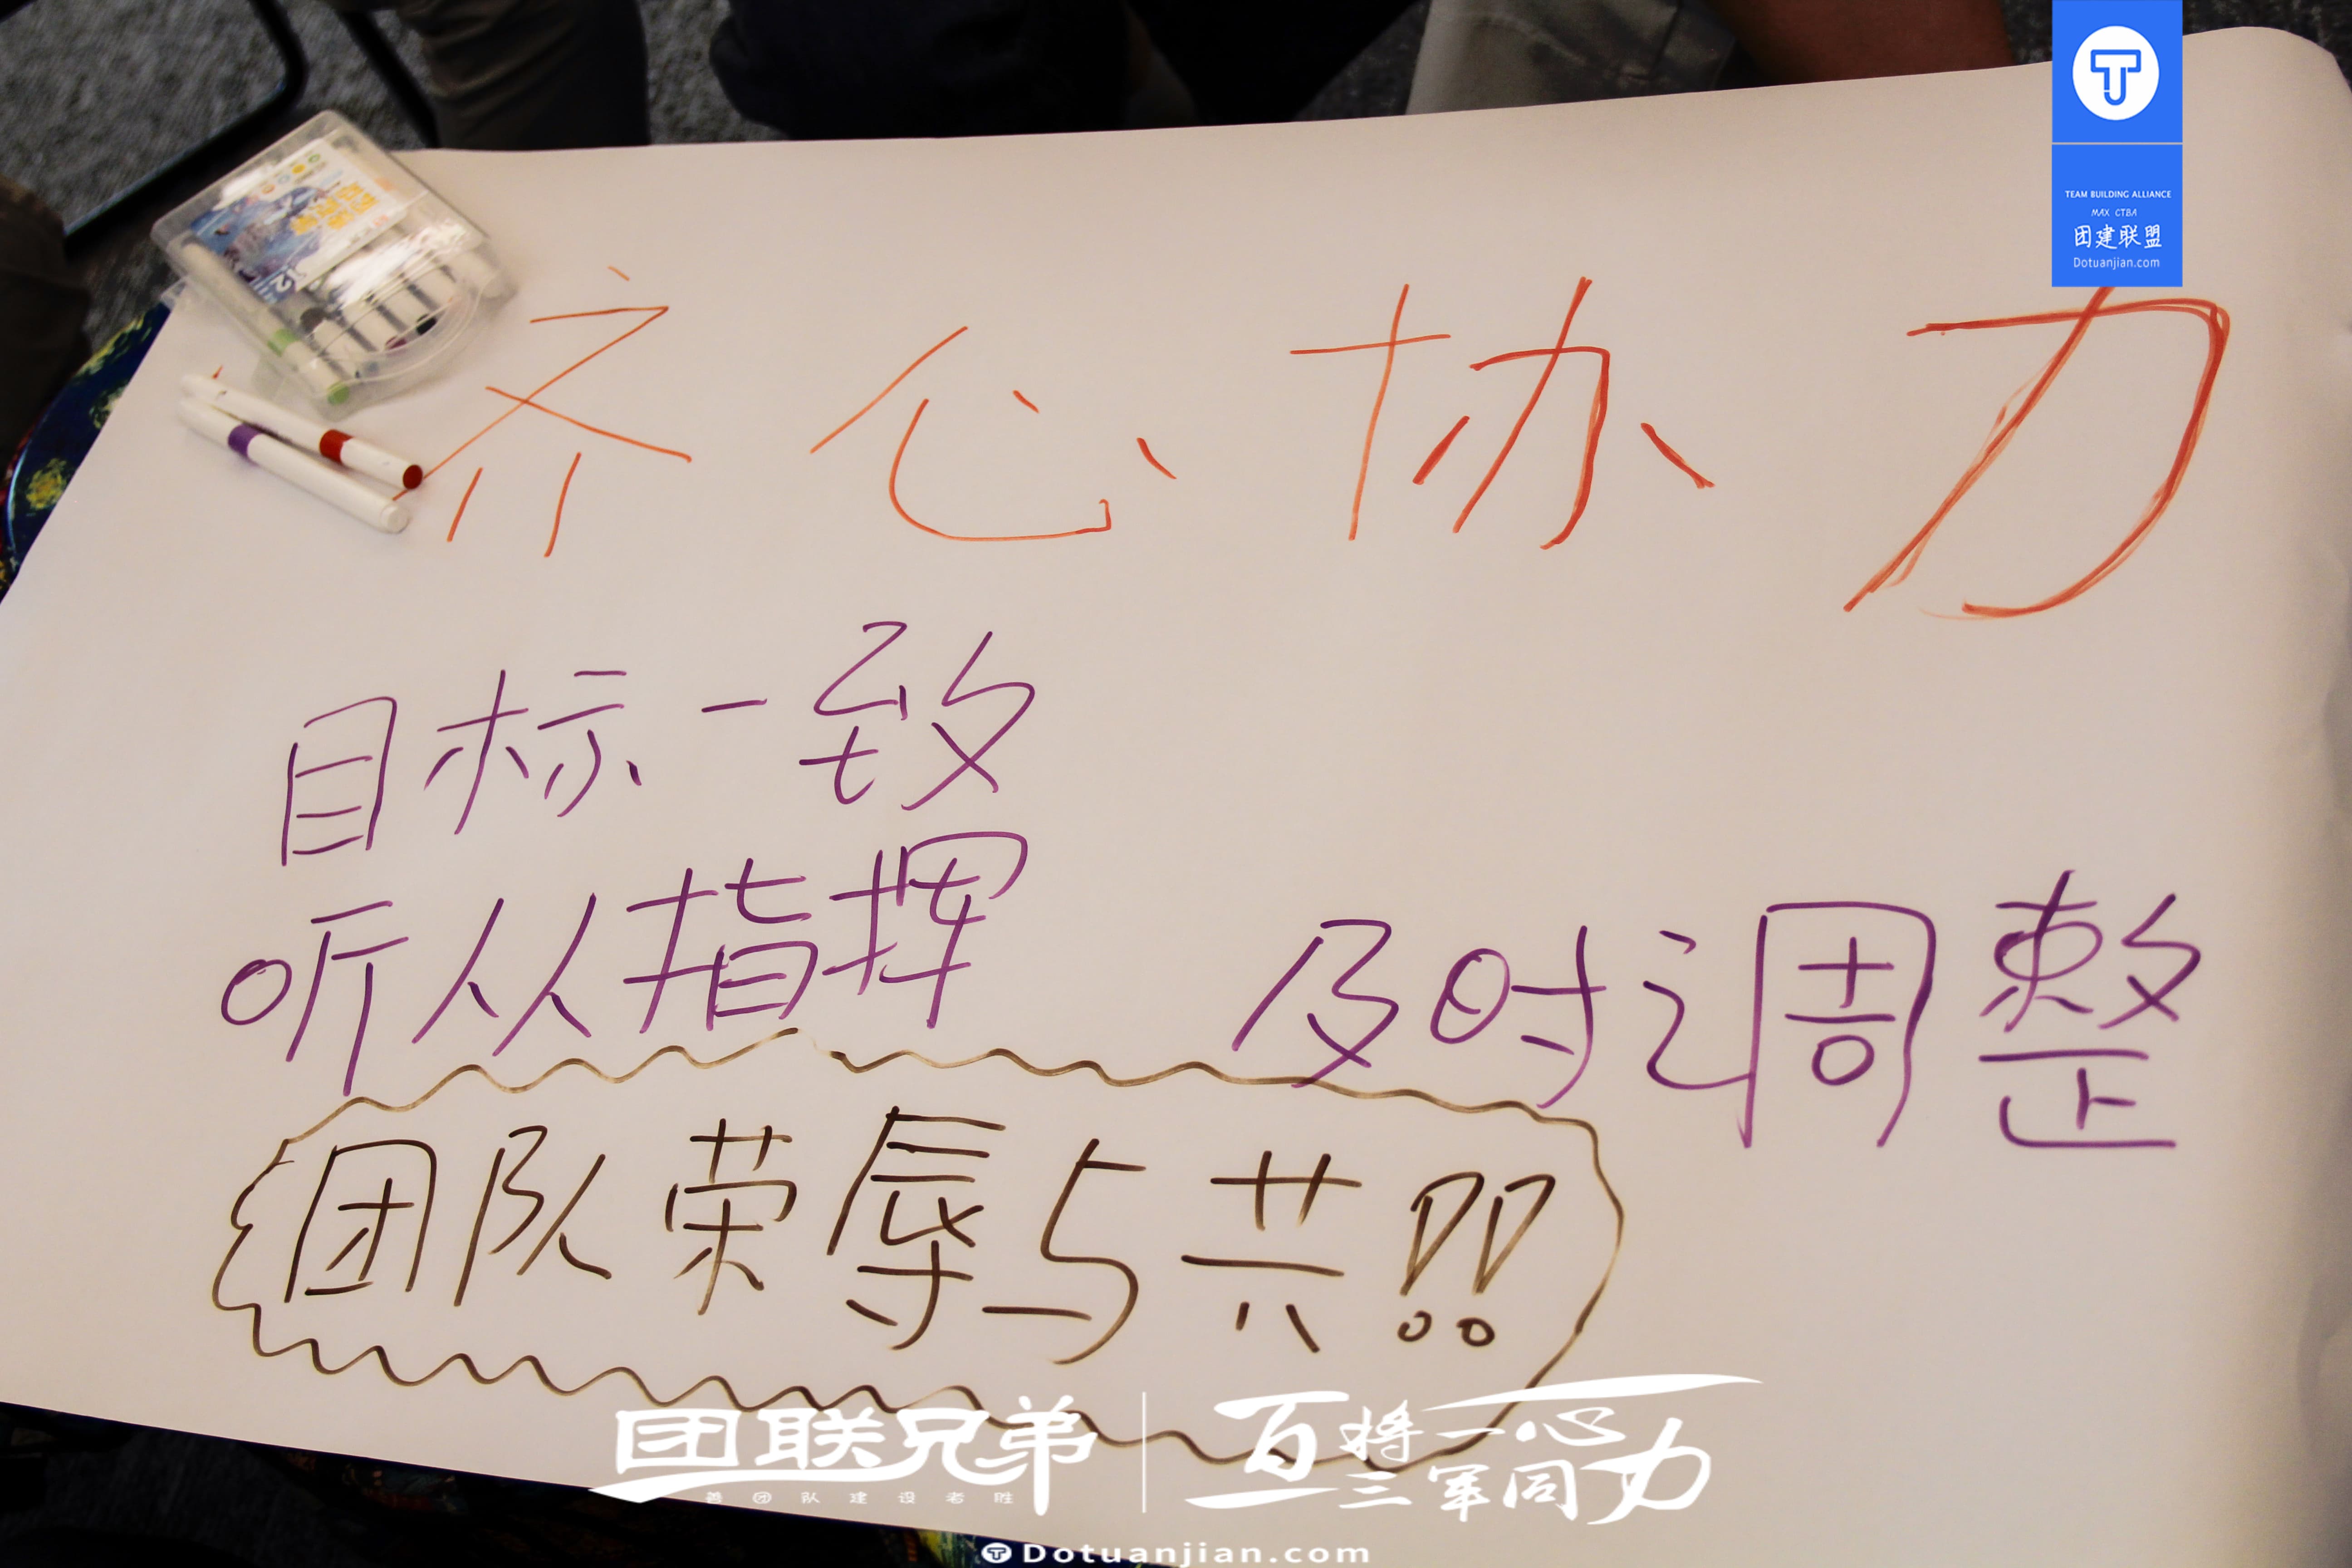 TEAM BUILDING ALLIANCE
MAX CTBA
团建联盟
Dotuanjian.com
12
齐心协力
目标一致
听从指挥
及时调整
团队荣辱与共!!
团联兄弟
善团队建设者胜
百将一心
三军同力
Dotuanjian.com